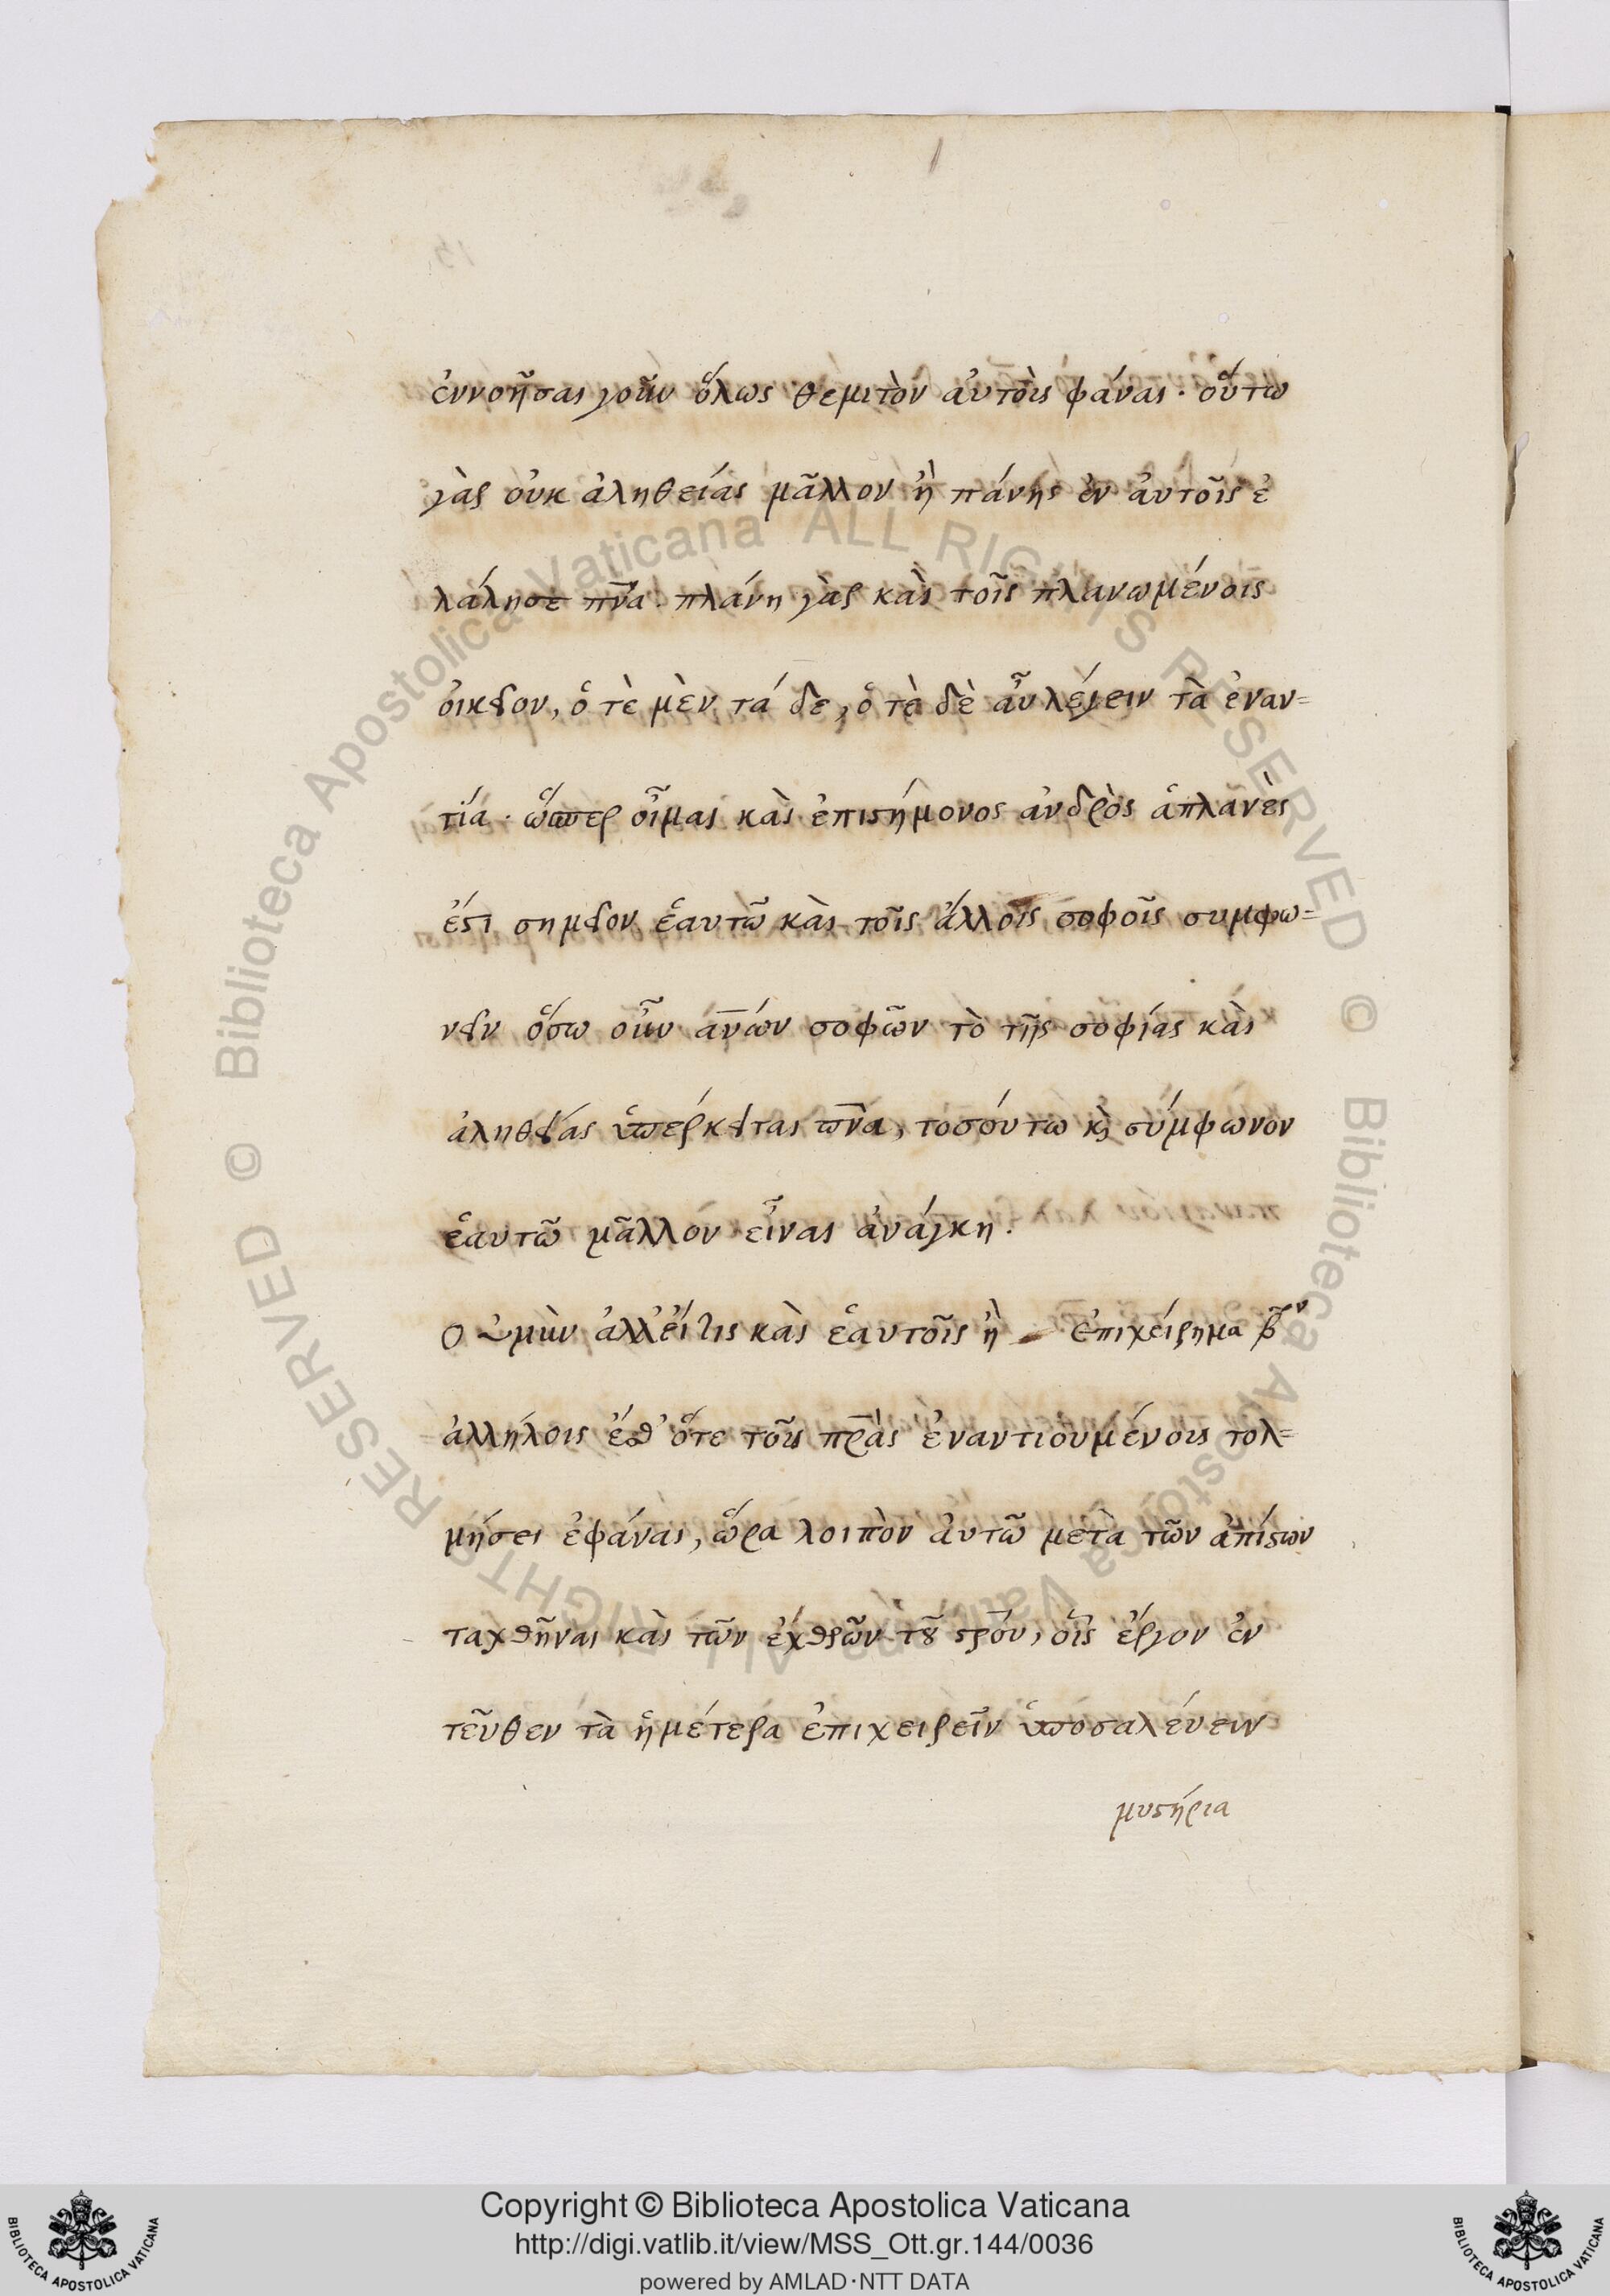 ἐννοῆσαι γοῦν ὅλως θεμιτὸν ἀυτοῖς φάναι· οὕτω
γὰρ οὐκ ἀληθείας μᾶλλον ἢ πάνης ἐν ἀυτοῖς ἐ
λάλησε πν̅α. πλάνη γὰρ καὶ τοῖς πλανωμένοις
οἰκεῖον, ὁ τὲ μὲν τά δε, ὁ τὲ δὲ αὖ λέγειν τὰ ἐναν=
τία. ὥσπερ οἶμαι καὶ ἐπιστήμονος ἀνδρὸς ἁπλανὲς
ἐστι σημεῖον ἑαυτῶ καὶ τοῖς ἄλλοις σοφοῖς συμφω=
νεῖν ὅσω οὖν αν̅ων σοφῶν τὸ τῆς σοφίας καὶ
ἀληθείας ὑπέρκειται πν̅α, τοσούτω κὶ σύμφωνον
ἑαυτῶ μᾶλλον εἶναι ἀνάγκη.
Ο υμὴν ἀλλ' εἴ τις καὶ ἑαυτοῖς ἢ Ἐπιχείρημα β̅ον
ἀλλήλοις ἐσθ' ὅτε τοὺς πρ̅ας ἐναντιουμένους τολ=
μήσει ἐφάναι, ὥρα λοιπὸν ἀυτῶ μετὰ τῶν ἀπίστων
ταχθῆναι καὶ τῶν ἐχθρῶν τοῦ στρ̅ου, οἷς ἔργον ἐν
τεῦθεν τὰ ἡμέτερα ἐπιχειρεῖν ὑποσαλέυειν
μυστήρια
© Biblioteca Apostolica Vaticana ALL RIGHTS RESERVED © Biblioteca Apostolica Vaticana ALL RIGHTS RESERVED
Copyright © Biblioteca Apostolica Vaticana
http://digi.vatlib.it/view/MSS_Ott.gr.144/0036
powered by AMLAD·NTT DATA
BIBLIOTECA APOSTOLICA VATICANA
BIBLIOTECA APOSTOLICA VATICANA